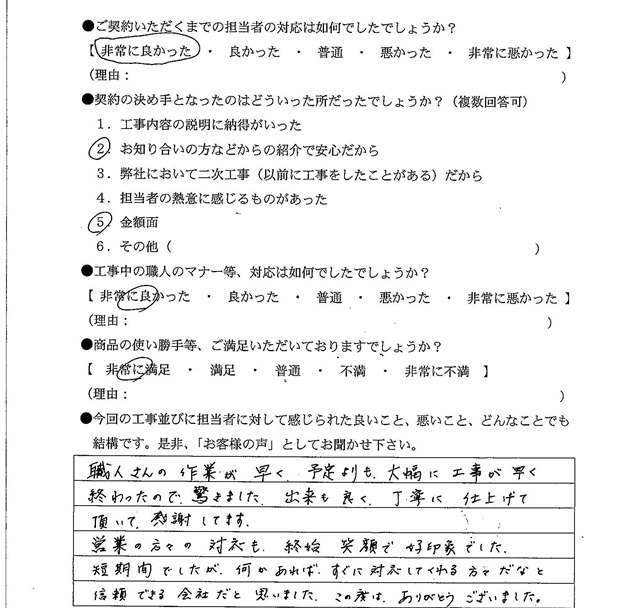 ●ご契約いただくまでの担当者の対応は如何でしたでしょうか？
【 非常に良かった ・ 良かった ・ 普通 ・ 悪かった ・ 非常に悪かった 】
（理由： ）
●契約の決め手となったのはどういった所だったでしょうか？（複数回答可）
1．工事内容の説明に納得がいった
2．お知り合いの方などからの紹介で安心だから
3．弊社において二次工事（以前に工事をしたことがある）だから
4．担当者の熱意に感じるものがあった
5．金額面
6．その他（ ）
●工事中の職人のマナー等、対応は如何でしたでしょうか？
【 非常に良かった ・ 良かった ・ 普通 ・ 悪かった ・ 非常に悪かった 】
（理由： ）
●商品の使い勝手等、ご満足いただいておりますでしょうか？
【 非常に満足 ・ 満足 ・ 普通 ・ 不満 ・ 非常に不満 】
（理由： ）
●今回の工事並びに担当者に対して感じられた良いこと、悪いこと、どんなことでも
結構です。是非、「お客様の声」としてお聞かせ下さい。
職人さんの作業が早く、予定よりも、大幅に工事が早く
終わったので、驚きました。出来も良く、丁寧に仕上げて
頂いて、感謝してます。
営業の方々の対応も、終始笑顔で好印象でした。
短期間でしたが、何かあれば、すぐに対応してくれる方々だなと
信頼できる会社だと思いました。この度は、ありがとうございました。